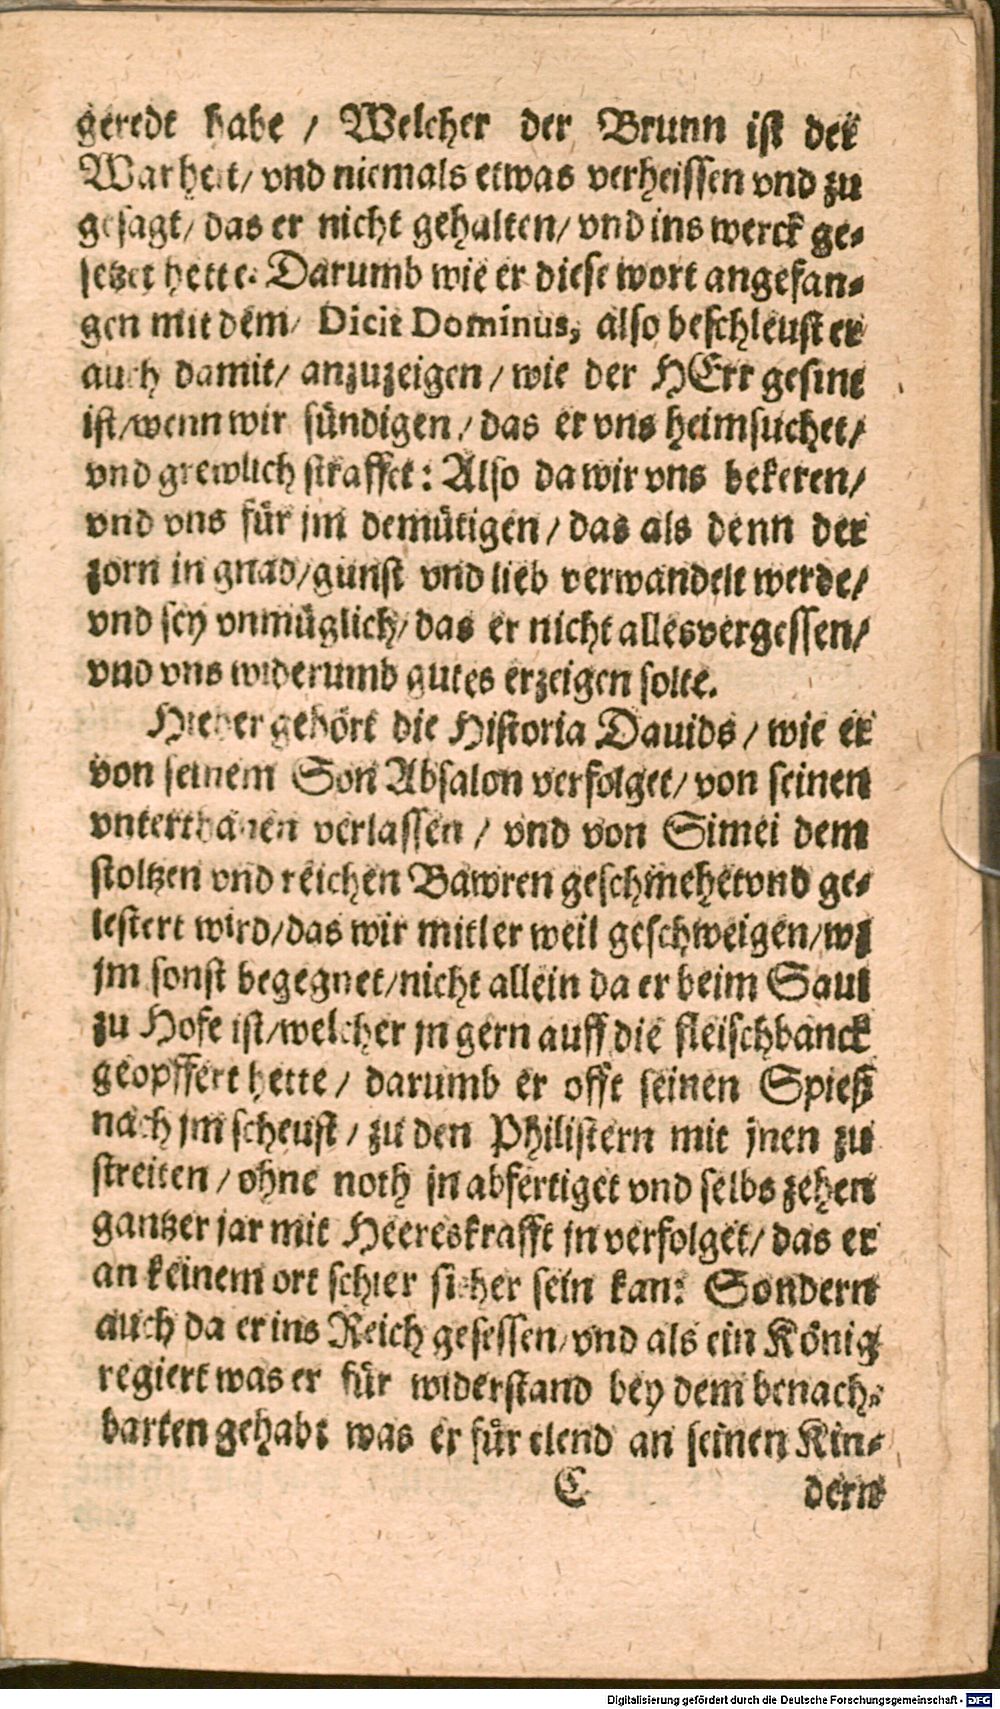 geredt habe / Welcher der Brunn ist der
Warheit / vnd niemals etwas verheissen vnd zu
gesagt / das er nicht gehalten / vnd ins werck ge-
setzet hette. Darumb wie er diese wort angefan-
gen mit dem / Dicit Dominus, also beschleust er
auch damit / anzuzeigen / wie der HErr gesint
ist / wenn wir sündigen / das er vns heimsuchet /
vnd grewlich straffet: Also da wir vns bekeren /
vnd vns für jm demütigen / das als denn der
zorn in gnad / gunst vnd lieb verwandelt werde /
vnd sey vnmüglich / das er nicht alles vergessen /
vnd vns widerumb gutes erzeigen solte.
Hieher gehört die Historia Dauids / wie er
von seinem Son Absalon verfolget / von seinen
vnterthanen verlassen / vnd von Simei dem
stoltzen vnd reichen Bawren geschmehet vnd ge-
lestert wird / das wir mitler weil geschweigen / wz
jm sonst begegnet / nicht allein da er beim Saul
zu Hofe ist / welcher jn gern auff die fleischbanck
geopffert hette / darumb er offt seinen Spieß
nach jm scheust / zu den Philistern mit jnen zu
streiten / ohne noth jn abfertiget vnd selbs zehen
gantzer jar mit Heereskrafft jn verfolget / das er
an keinem ort schier sicher sein kan: Sondern
auch da er ins Reich gesessen / vnd als ein König
regiert was er für widerstand bey dem benach-
barten gehabt was er für elend an seinen Kin-
C dern
Digitalisierung gefördert durch die Deutsche Forschungsgemeinschaft - DFG